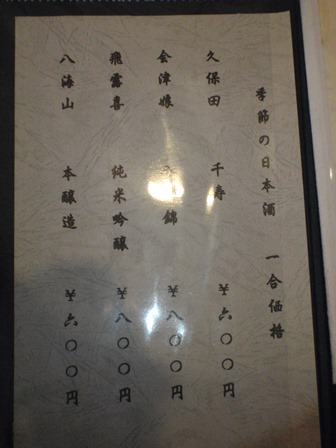 季節の日本酒 一合価格
久保田 千寿 ¥六〇〇円
会津娘 錦 ¥八〇〇円
飛露喜 純米吟醸 ¥八〇〇円
八海山 本醸造 ¥六〇〇円